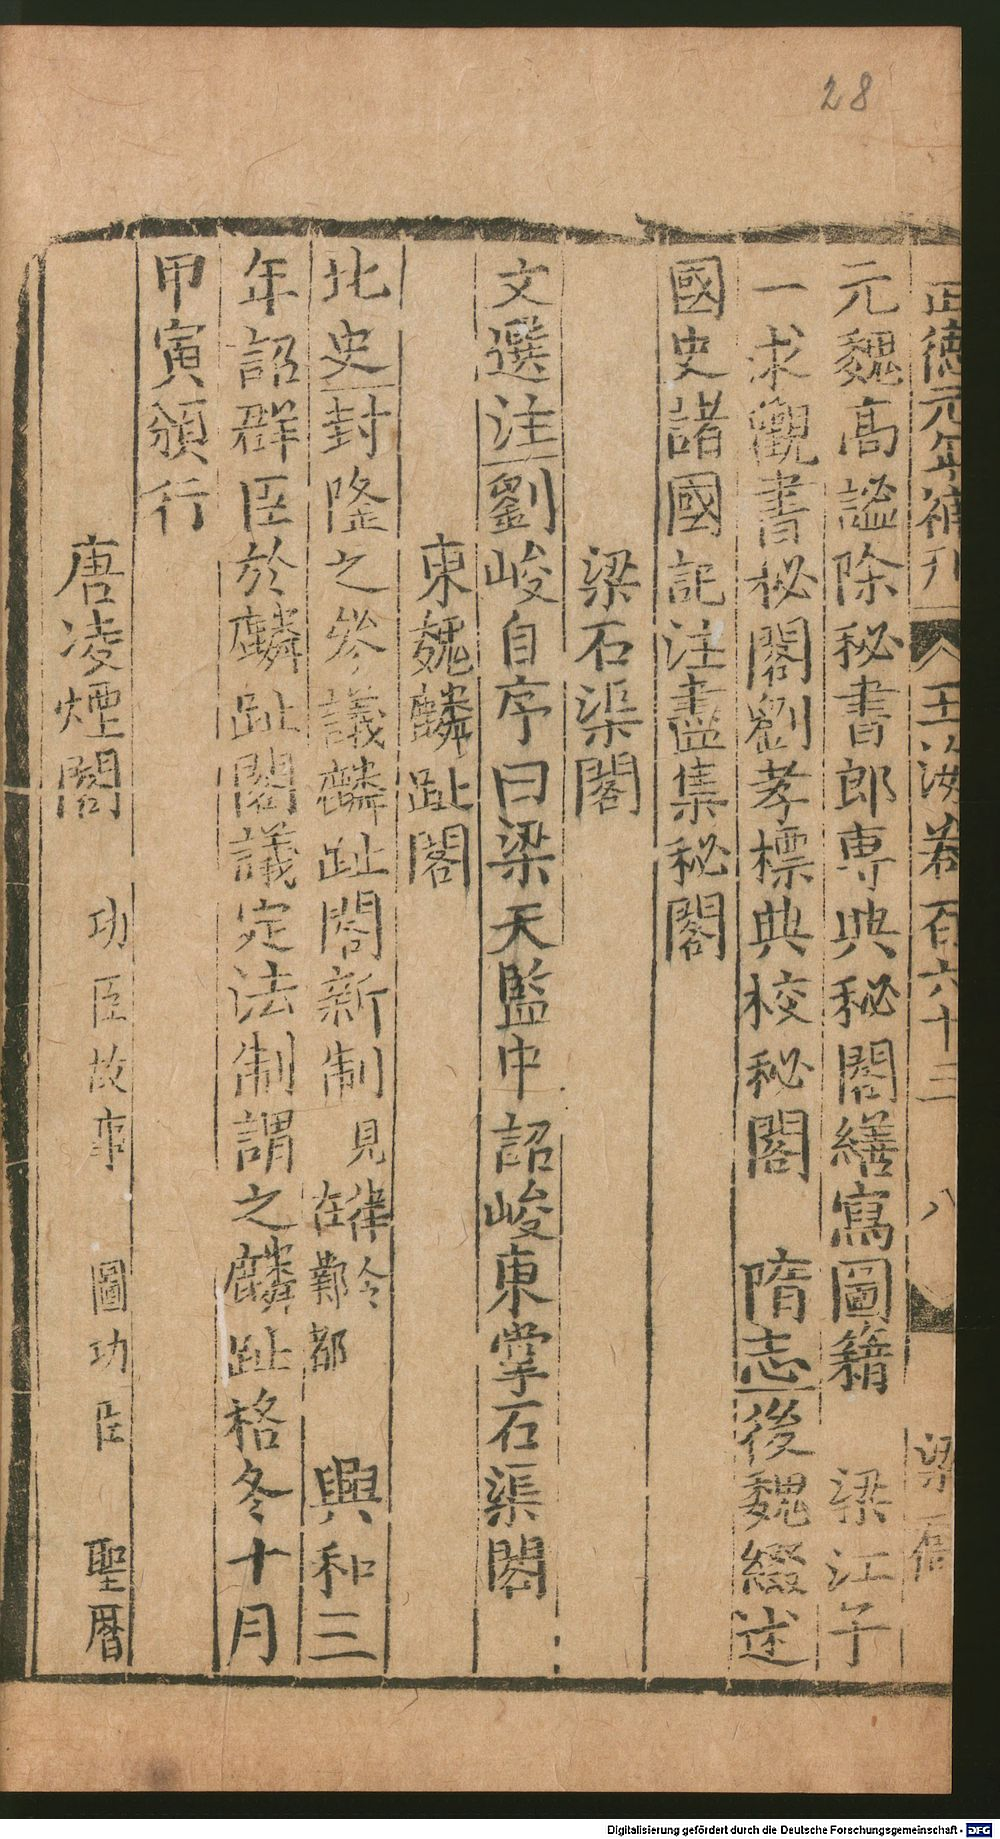 28
正德元年補刋 玉海卷百六十三 八 梁 
元魏高謐除秘書郎專典秘閣繕寫圖籍 梁江子
一求觀書秘閣劉孝標典校秘閣 隋志後魏綴述
國史諸國記注盡集秘閣
梁石渠閣
文選注劉峻自序曰梁天監中詔峻東掌石渠閣
東魏麟趾閣
北史封隆之參議麟趾閣新制 見律令 在鄴都 興和三
年詔群臣於麟趾閣議定法制謂之麟趾格冬十月
甲寅頒行
唐凌煙閣 功臣故事 圖功臣 聖曆
Digitalisierung gefördert durch die Deutsche Forschungsgemeinschaft - DFG